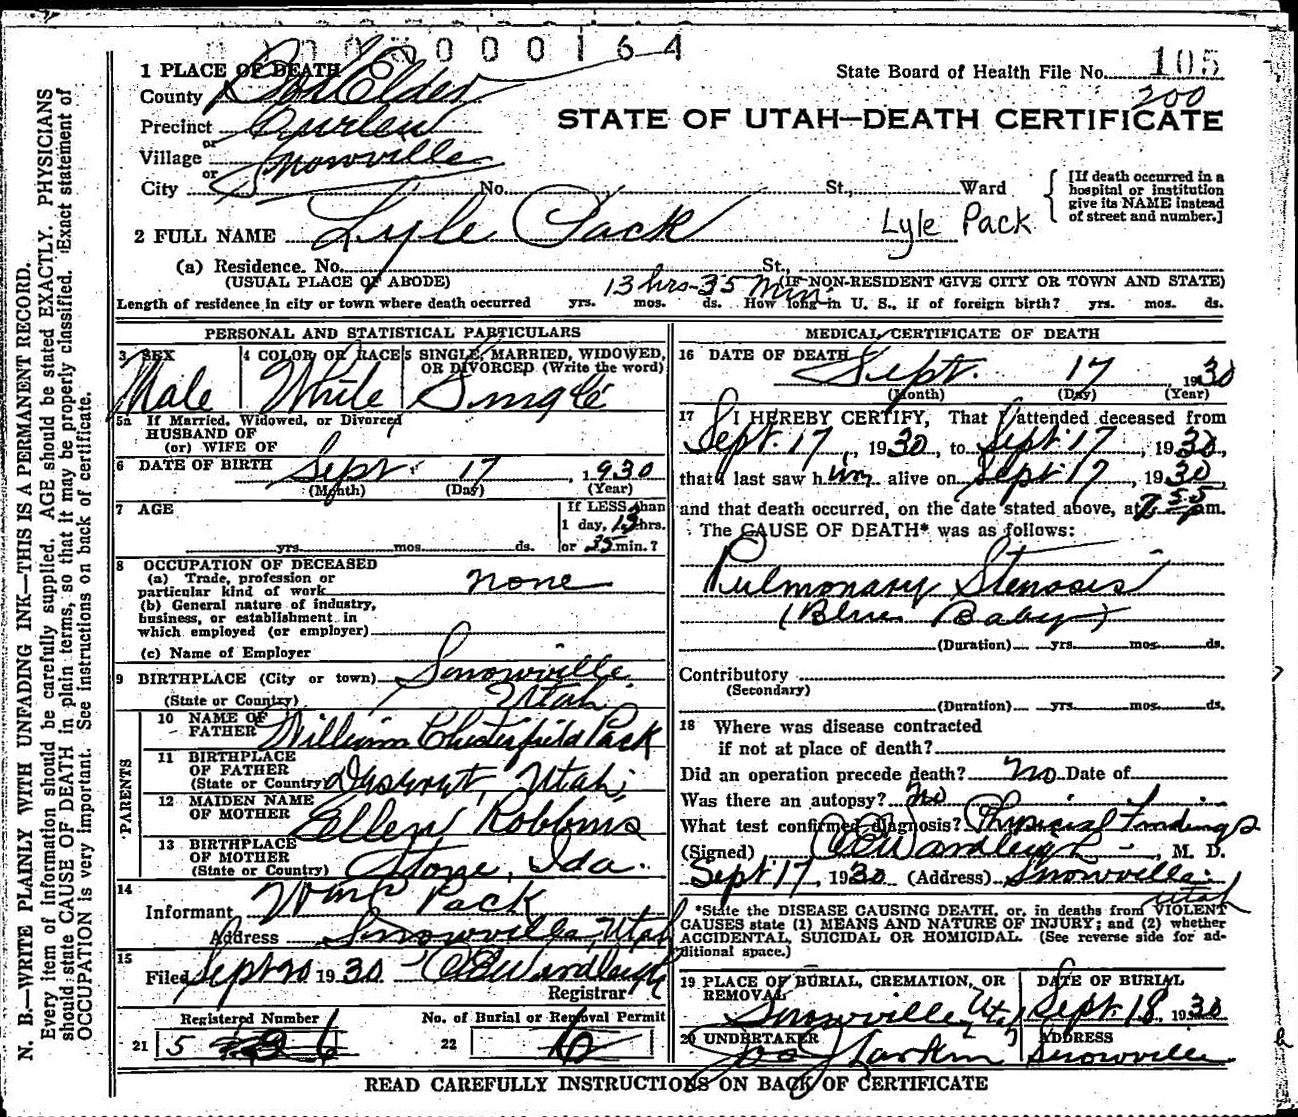 0 0 0 0 0 0 0 1 6 4
1 PLACE OF DEATH
State Board of Health File No. 105
200
County Box Elder
STATE OF UTAH—DEATH CERTIFICATE
Precinct Curlew
or
Village Snowville
or
City No. St., Ward
[If death occurred in a hospital or institution give its NAME instead of street and number.]
2 FULL NAME Lyle Pack Lyle Pack
(a) Residence. No. St.,
(USUAL PLACE OF ABODE) 13 hrs-35 Min. (IF NON-RESIDENT GIVE CITY OR TOWN AND STATE)
Length of residence in city or town where death occurred yrs. mos. ds. How long in U. S., if of foreign birth? yrs. mos. ds.
PERSONAL AND STATISTICAL PARTICULARS
3 SEX Male
4 COLOR OR RACE White
5 SINGLE, MARRIED, WIDOWED, OR DIVORCED (Write the word) Single
5a If Married, Widowed, or Divorced
HUSBAND OF
(or) WIFE OF
6 DATE OF BIRTH Sept 17, 1930
(Month) (Day) (Year)
7 AGE yrs. mos. ds.
If LESS than
1 day, 13 hrs.
or 35 min.?
8 OCCUPATION OF DECEASED
(a) Trade, profession or
particular kind of work none
(b) General nature of industry,
business, or establishment in
which employed (or employer)
(c) Name of Employer
9 BIRTHPLACE (City or town) Snowville
(State or Country) Utah
PARENTS
10 NAME OF FATHER William Chesterfield Pack
11 BIRTHPLACE OF FATHER
(State or Country) Deseret, Utah
12 MAIDEN NAME OF MOTHER Ellen Robbins
13 BIRTHPLACE OF MOTHER
(State or Country) Stone, Ida.
14
Informant Wm C Pack
Address Snowville, Utah
15
Filed Sept 20 1930 C E Wardleigh
Registrar
Registered Number
21 5
No. of Burial or Removal Permit
22 6
MEDICAL CERTIFICATE OF DEATH
16 DATE OF DEATH Sept. 17, 1930
(Month) (Day) (Year)
17 I HEREBY CERTIFY, That I attended deceased from
Sept. 17, 1930, to Sept. 17, 1930,
that I last saw him alive on Sept 17, 1930,
and that death occurred, on the date stated above, at 7 55 pm.
The CAUSE OF DEATH* was as follows:
Pulmonary Stenosis
(Blue Baby)
(Duration) yrs. mos. ds.
Contributory
(Secondary)
(Duration) yrs. mos. ds.
18 Where was disease contracted
if not at place of death?
Did an operation precede death? No Date of
Was there an autopsy? No
What test confirmed diagnosis? Physical Findings
(Signed) C E Wardleigh, M. D.
Sept 17, 1930 (Address) Snowville
Utah
*State the DISEASE CAUSING DEATH, or, in deaths from VIOLENT
CAUSES state (1) MEANS AND NATURE OF INJURY; and (2) whether
ACCIDENTAL, SUICIDAL OR HOMICIDAL. (See reverse side for ad-
ditional space.)
19 PLACE OF BURIAL, CREMATION, OR REMOVAL
Snowville, Ut.
DATE OF BURIAL
Sept. 18, 1930
20 UNDERTAKER
Jos Larkin
ADDRESS
Snowville
READ CAREFULLY INSTRUCTIONS ON BACK OF CERTIFICATE
N. B.—WRITE PLAINLY WITH UNFADING INK—THIS IS A PERMANENT RECORD.
Every item of information should be carefully supplied. AGE should be stated EXACTLY. PHYSICIANS
should state CAUSE OF DEATH in plain terms, so that it may be properly classified. Exact statement of
OCCUPATION is very important. See instructions on back of certificate.